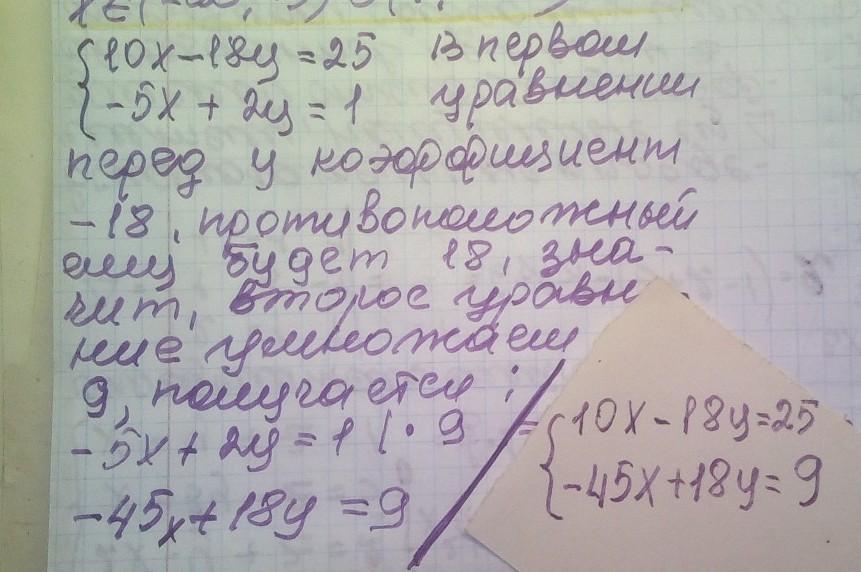 {10x-18y=25 В первом
{-5x+2y=1 уравнении
перед у коэффициент
-18, противоположный
ему будет 18, зна-
чит, второе уравн
ние умножаем
9, получается:
-5x+2y=1 |·9
-45x+18y=9
=
{10x-18y=25
{-45x+18y=9